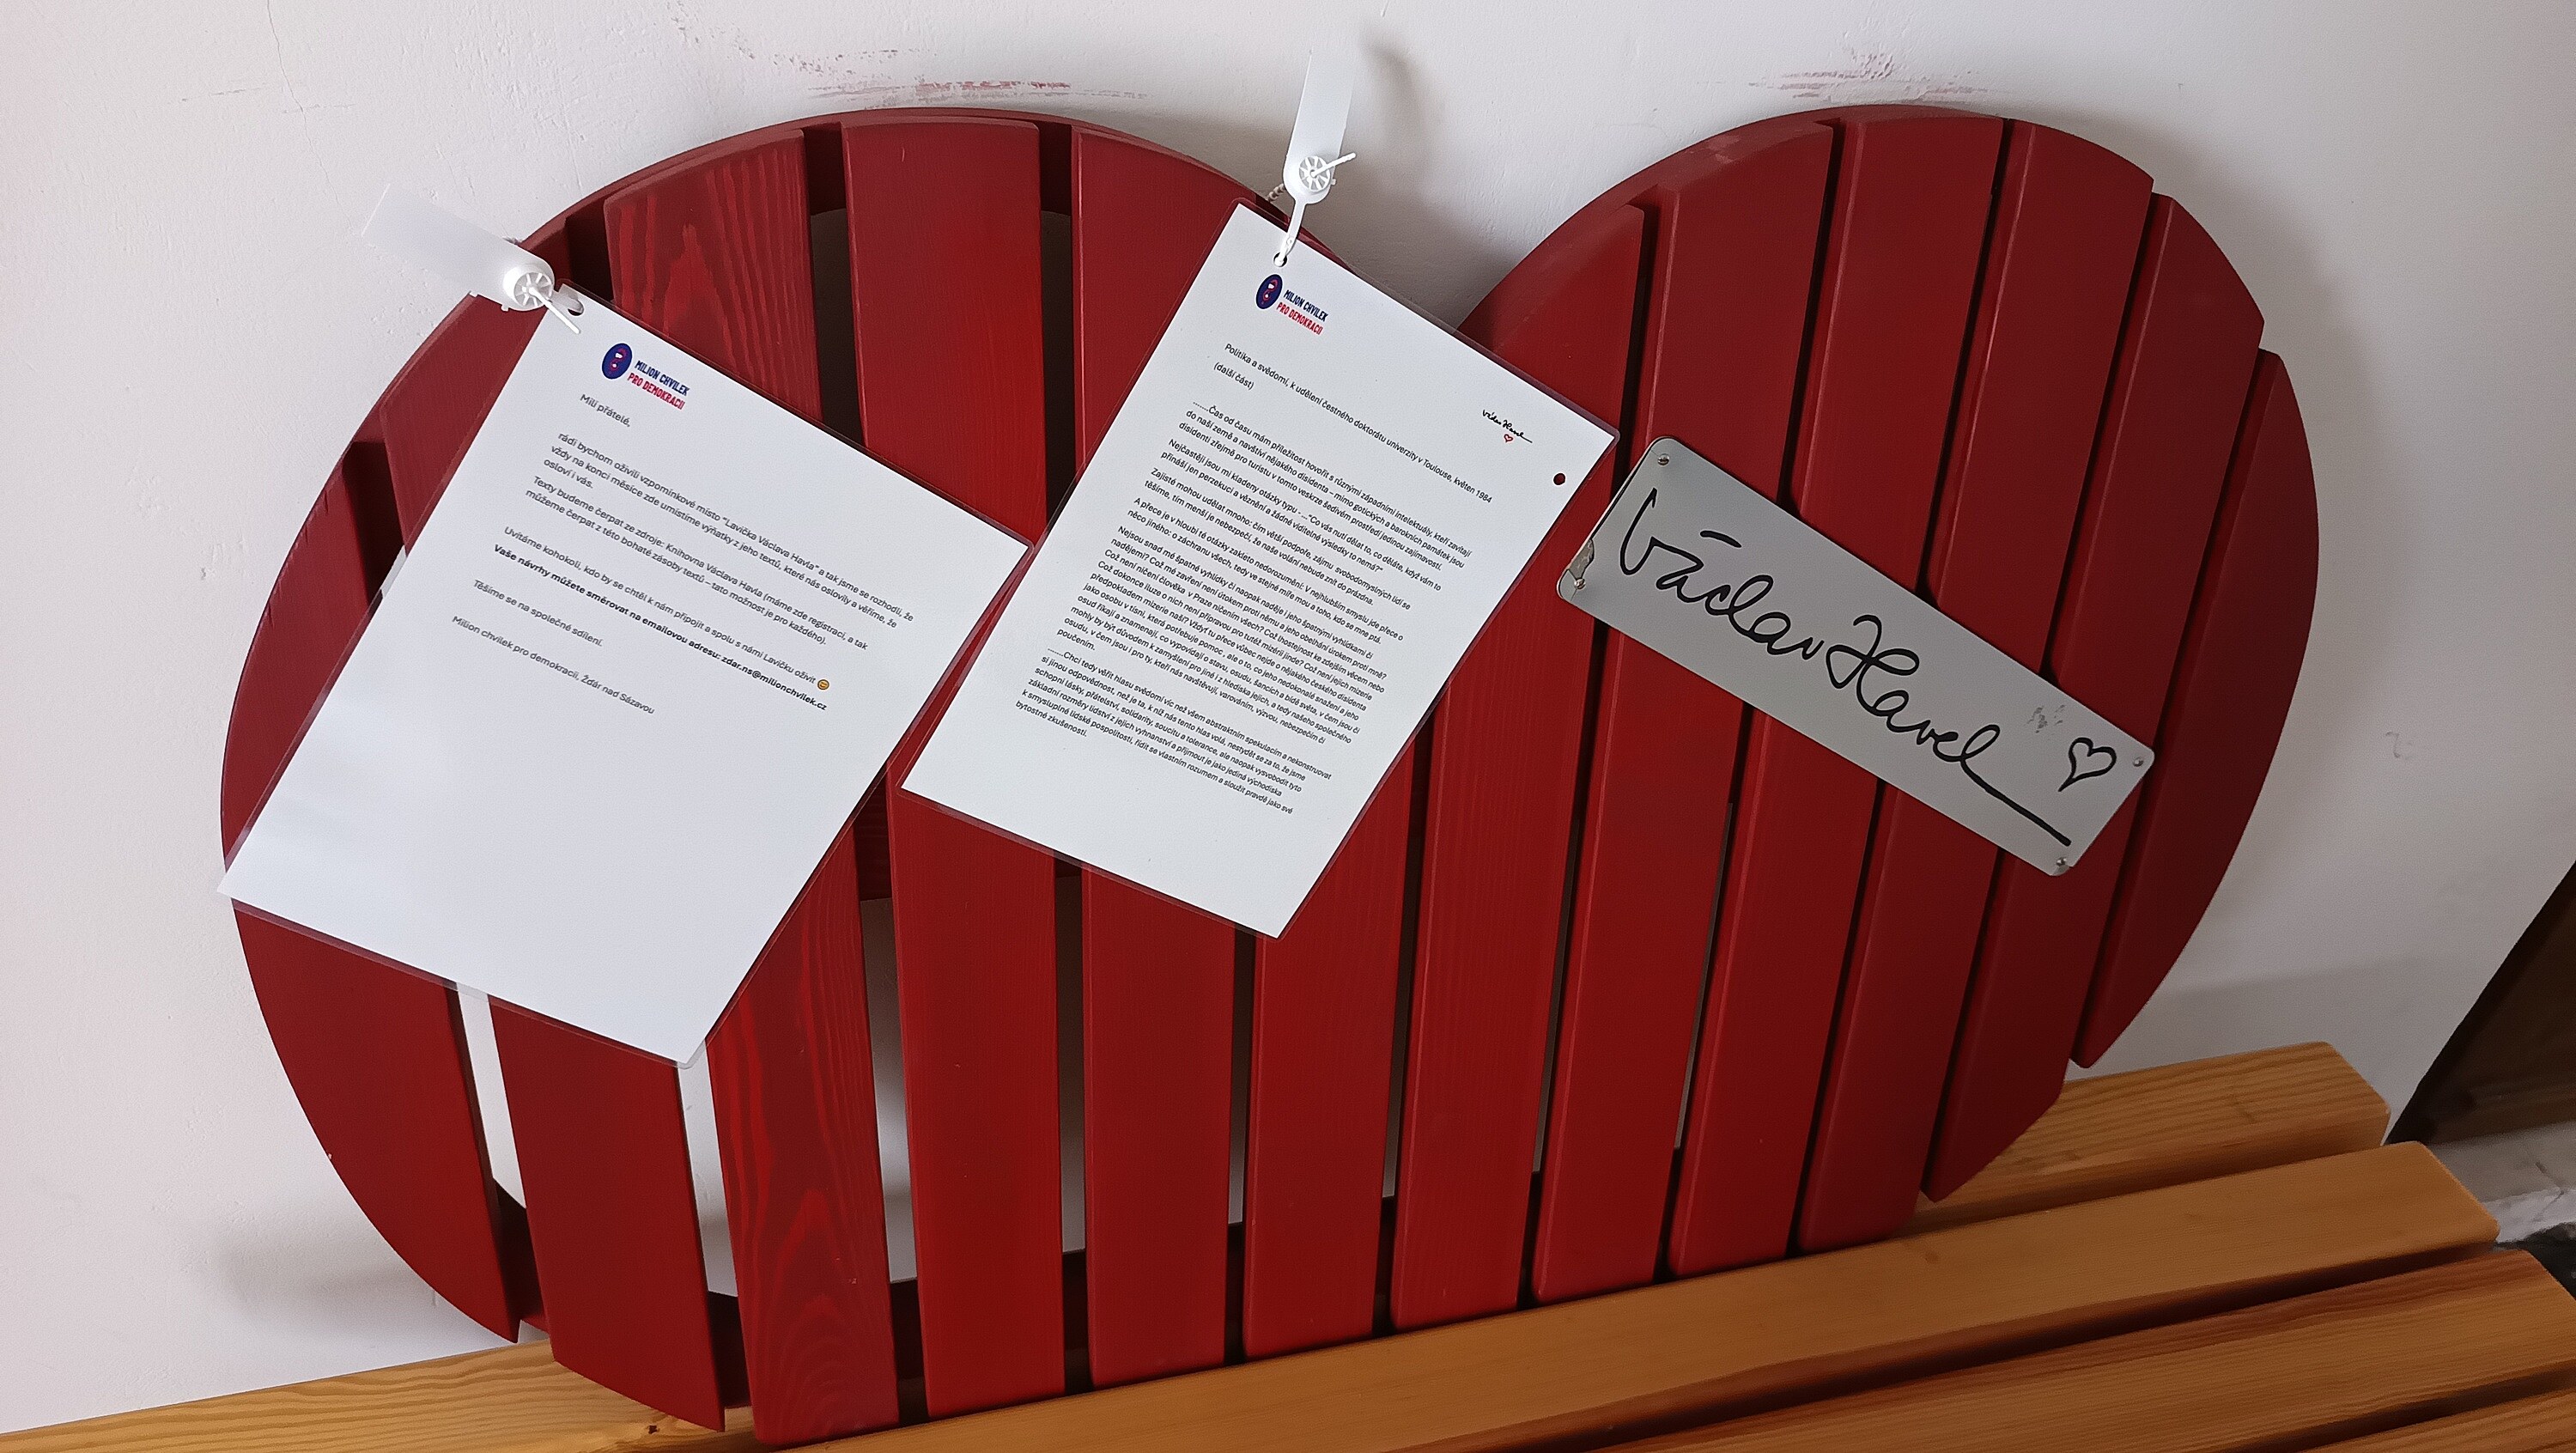 MILION CHVILEK
PRO DEMOKRACII
Milí přátelé,
rádi bychom oživili vzpomínkové místo "Lavička Václava Havla" a tak jsme se rozhodli, že
vždy na konci měsíce zde umístíme výňatky z jeho textů, které nás oslovily a věříme, že
osloví i vás.
Texty budeme čerpat ze zdroje: Knihovna Václava Havla (máme zde registraci, a tak
můžeme čerpat z této bohaté zásoby textů – tato možnost je pro každého).
Uvítáme kohokoli, kdo by se chtěl k nám připojit a spolu s námi Lavičku oživit 😊
Vaše návrhy můžete směrovat na emailovou adresu: zdar.ns@milionchvilek.cz
Těšíme se na společné sdílení.
Milion chvilek pro demokracii, Žďár nad Sázavou
MILION CHVILEK
PRO DEMOKRACII
Václav Havel
Politika a svědomí, k udělení čestného doktorátu univerzity v Toulouse, květen 1984
(další část)
.......Čas od času mám příležitost hovořit s různými západními intelektuály, kteří zavítají
do naší země a navštíví nějakého disidenta – mimo gotických a barokních památek jsou
disidenti zřejmě pro turistu v tomto veskrze šedivém prostředí jedinou zajímavostí.
Nejčastěji jsou mi kladeny otázky typu - ..."Co vás nutí dělat to, co děláte, když vám to
přináší jen perzekuci a věznění a žádné viditelné výsledky to nemá?"
Zajisté mohou udělat mnoho: čím větší podpoře, zájmu svobodomyslných lidí se
těšíme, tím menší je nebezpečí, že naše volání nebude znít do prázdna.
A přece je v hloubi té otázky zakleto nedorozumění: V nejhlubším smyslu jde přece o
něco jiného: o záchranu všech, tedy ve stejné míře mou a toho, kdo se mne ptá.
Nejsou snad mé špatné vyhlídky či naopak naděje i jeho špatnými vyhlídkami či
nadějemi? Což mé zavření není útokem proti němu a jeho obelhání útokem proti mně?
Což není ničení člověka v Praze ničením všech? Což lhostejnost ke zdejším věcem nebo
Což dokonce iluze o nich není přípravou pro tutéž mizérii jinde? Což není jejich mizérie
předpokladem mizerie naší? Vždyť tu přece vůbec nejde o nějakého českého disidenta
jako osobu v tísni, která potřebuje pomoc , ale o to, co jeho nedokonalé snažení a jeho
osud říkají a znamenají, co vypovídají o stavu, osudu, šancích a bídě světa, v čem jsou či
mohly by být důvodem k zamyšlení pro jiné i z hlediska jejich, a tedy našeho společného
osudu, v čem jsou i pro ty, kteří nás navštěvují, varováním, výzvou, nebezpečím či
poučením.
.......Chci tedy věřit hlasu svědomí víc než všem abstraktním spekulacím a nekonstruovat
si jinou odpovědnost, než je ta, k níž nás tento hlas volá, nestydět se za to, že jsme
schopni lásky, přátelství, solidarity, soucitu a tolerance, ale naopak vysvobodit tyto
základní rozměry lidství z jejich vyhnanství a přijmout je jako jediná východiska
k smysluplné lidské pospolitosti, řídit se vlastním rozumem a sloužit pravdě jako své
bytostné zkušenosti.
Václav Havel